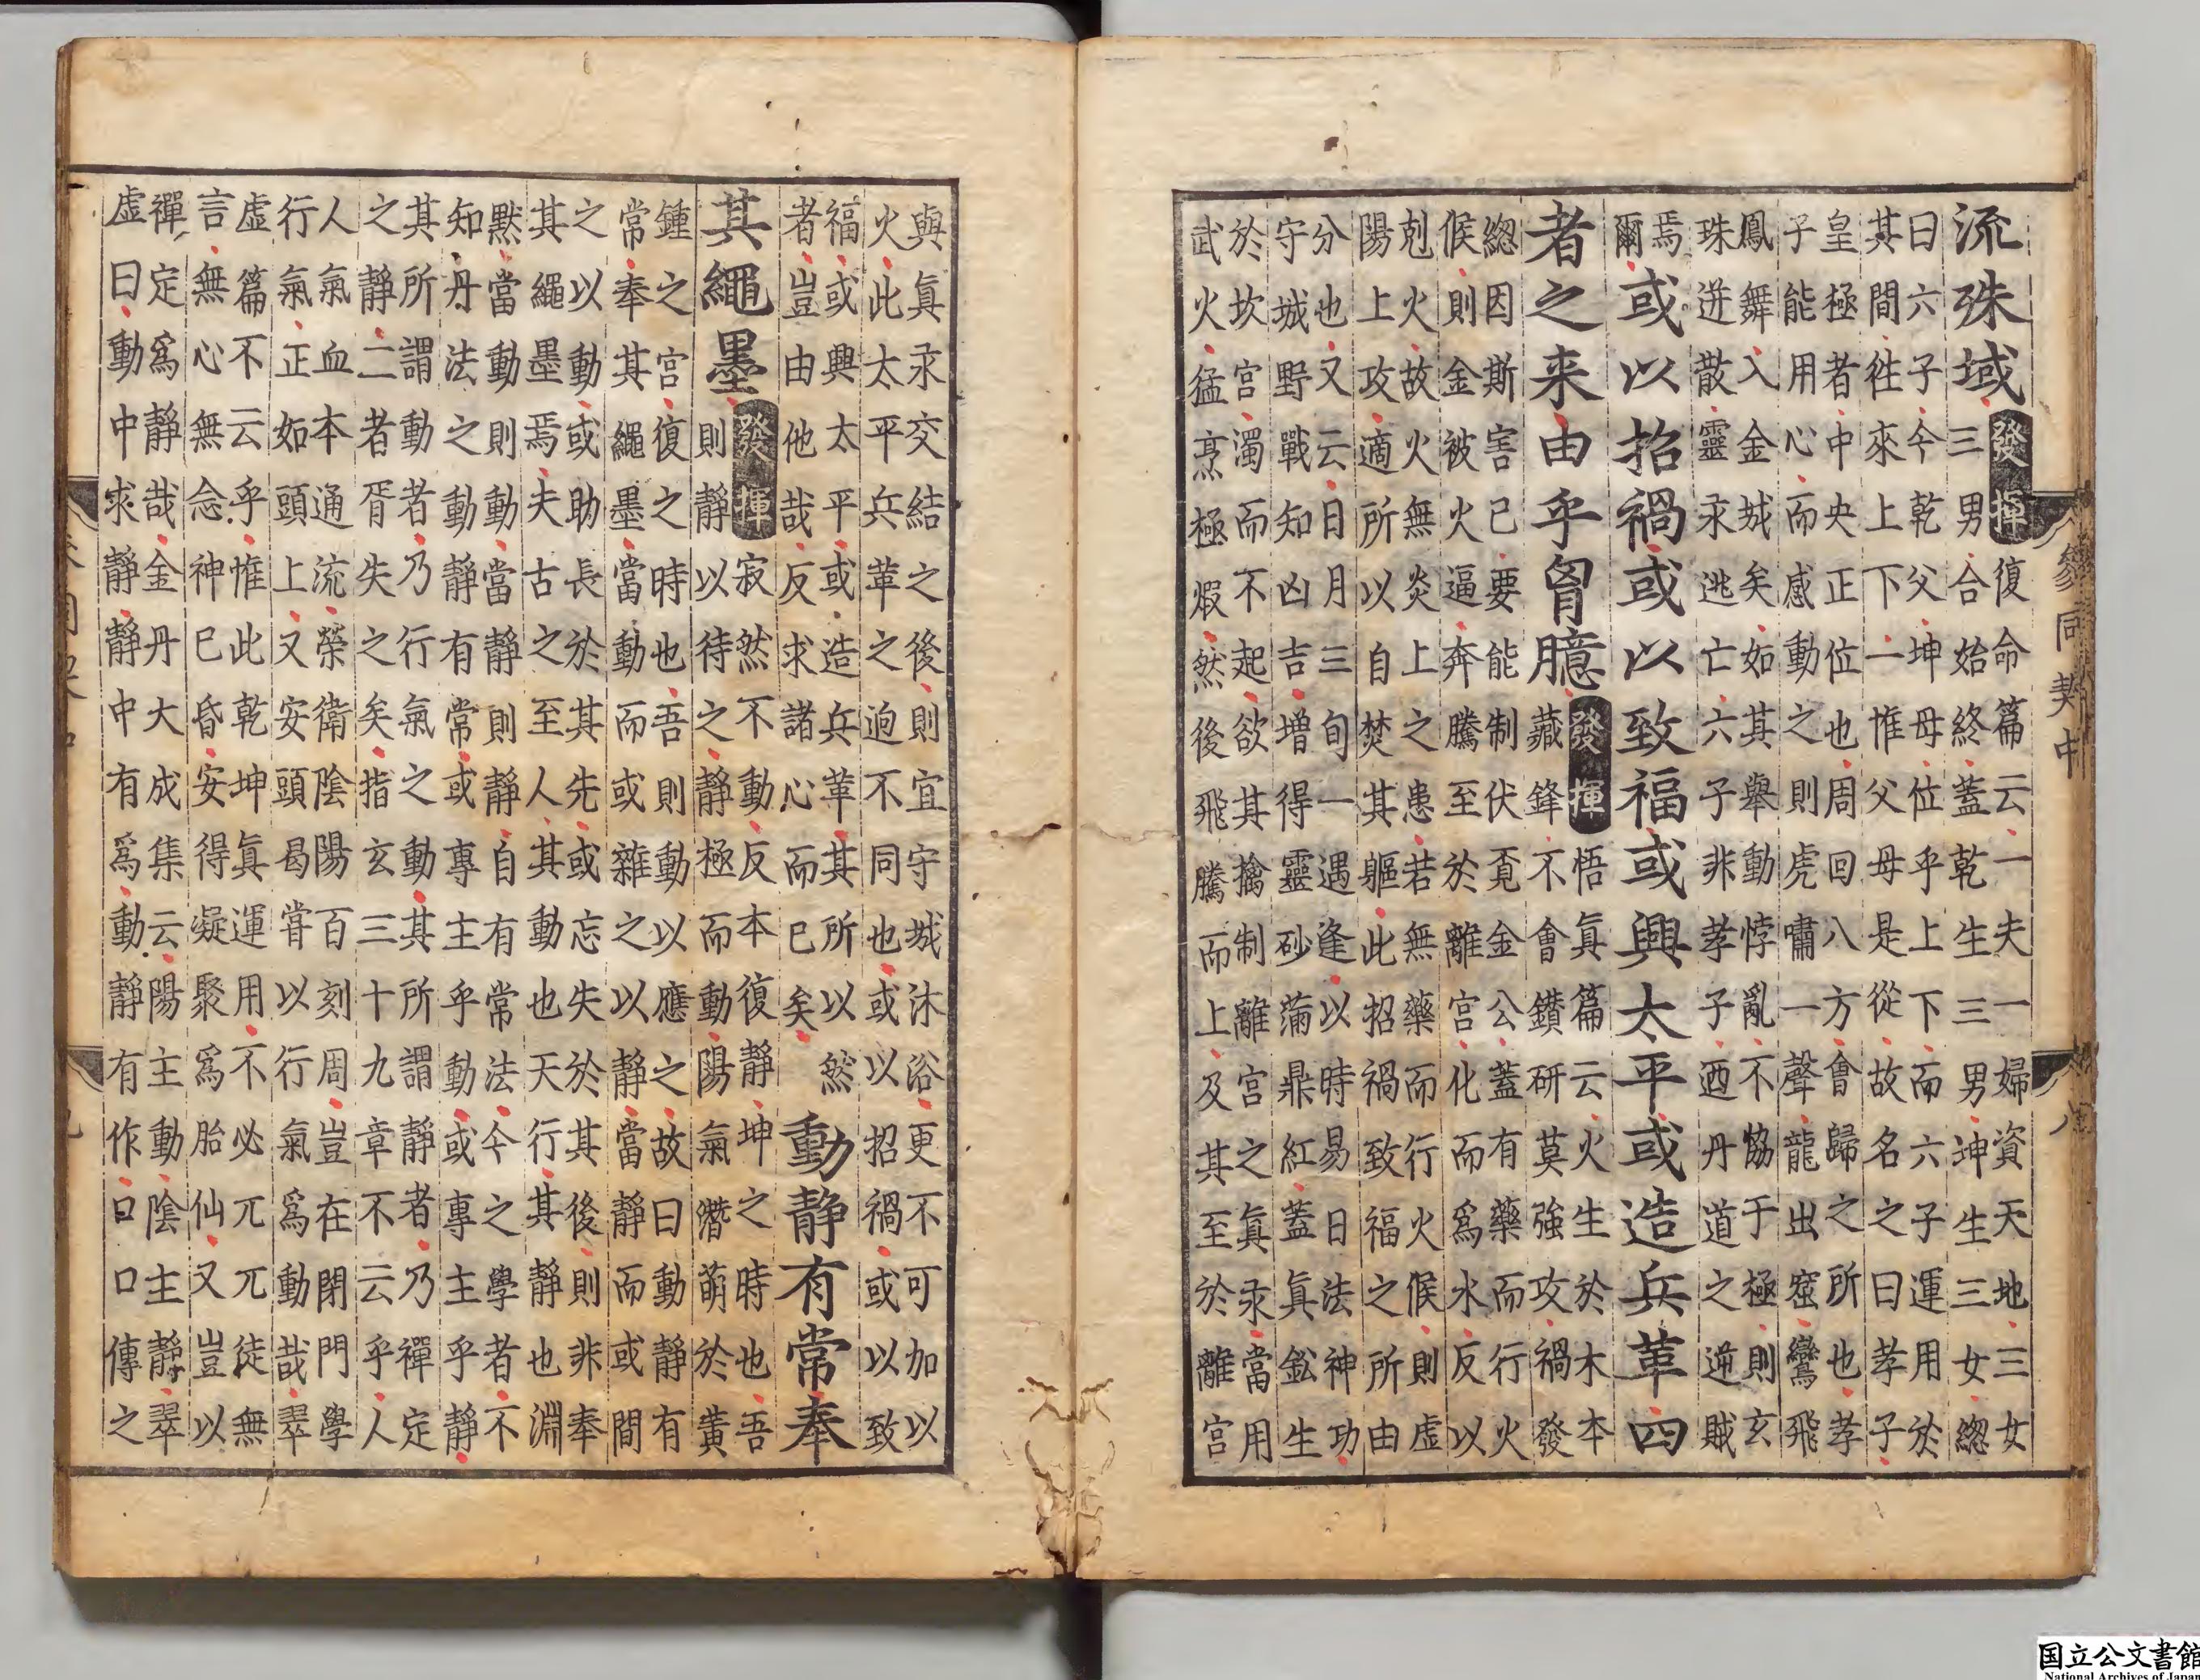 流珠域
發揮
復命篇云一夫一婦資天地三女
三男合始終蓋乾生三男坤生三女緫
曰六子今乾父坤母位乎上下而六子運用於
其間徃來上下一惟父母是從故名之曰孝子
皇極者中央正位也周回八方會歸之所也孝
子能用心而感動之則虎嘯一聲龍出窟鸞飛
鳳舞入金城矣如其舉動悖亂不恊于極則玄
珠迸散靈汞逃亡六子非孝子迺丹道之逆賊
焉
爾
或以招禍或以致福或興太平或造兵革四
者之来由乎胷臆
發揮
悟真篇云火生於木本
藏鋒不會鑚研莫強攻禍發
緫因斯害己要能制伏覓金公蓋有藥而行火
候則金被火逼奔騰至於離宮化而爲水反以
剋火故火無炎上之患若無藥而行火候則虛
陽上攻適所以自焚其軀此招禍致福之所由
分也又云日月三旬一遇逢以時易日法神功
守城野戰知凶吉增得靈砂蒲鼎紅蓋真鈆生
於坎宮濁而不起欲其擒制離宮之真汞當用
武火猛烹極煆然後飛騰而上及其至於離宮
參同契中
八
與真汞交結之後則宜守城沐浴更不可加以
火此太平兵革之逈不同也或以招禍或以致
福或興太平或造兵革其所以然
者豈由他哉反求諸心而已矣
動静有常奉
其繩墨
發揮
寂然不動反本復静坤之時也吾
則静以待之静極而動陽氣潛萌於黃
鍾之宮復之時也吾則動以應之故曰動静有
常奉其繩墨當動而或雜之以静當静而或間
之以動或助長於其先或忘失於其後則非奉
其繩墨焉夫古之至人其動也天行其静也淵
默當動則動當静則静自有常法今之學者不
知丹法之動静有常或專主乎動或專主乎静
其所謂動者乃行氣之動其所謂静者乃禪定
之静二者胥失之矣指玄三十九章不云乎人
人氣血本通流榮衛陰陽百刻周豈在閉門學
行氣正如頭上又安頭曷嘗以行氣爲動哉翠
虛篇不云乎惟此乾坤真運用不必兀兀徒無
言無心無念神已昏安得凝聚爲胎仙又豈以
禪定爲静哉金丹大成集云陽主動陰主静翠
虛曰動中求静静中有爲動静有作口口傳之
国立公文書館
National Archives of Japan